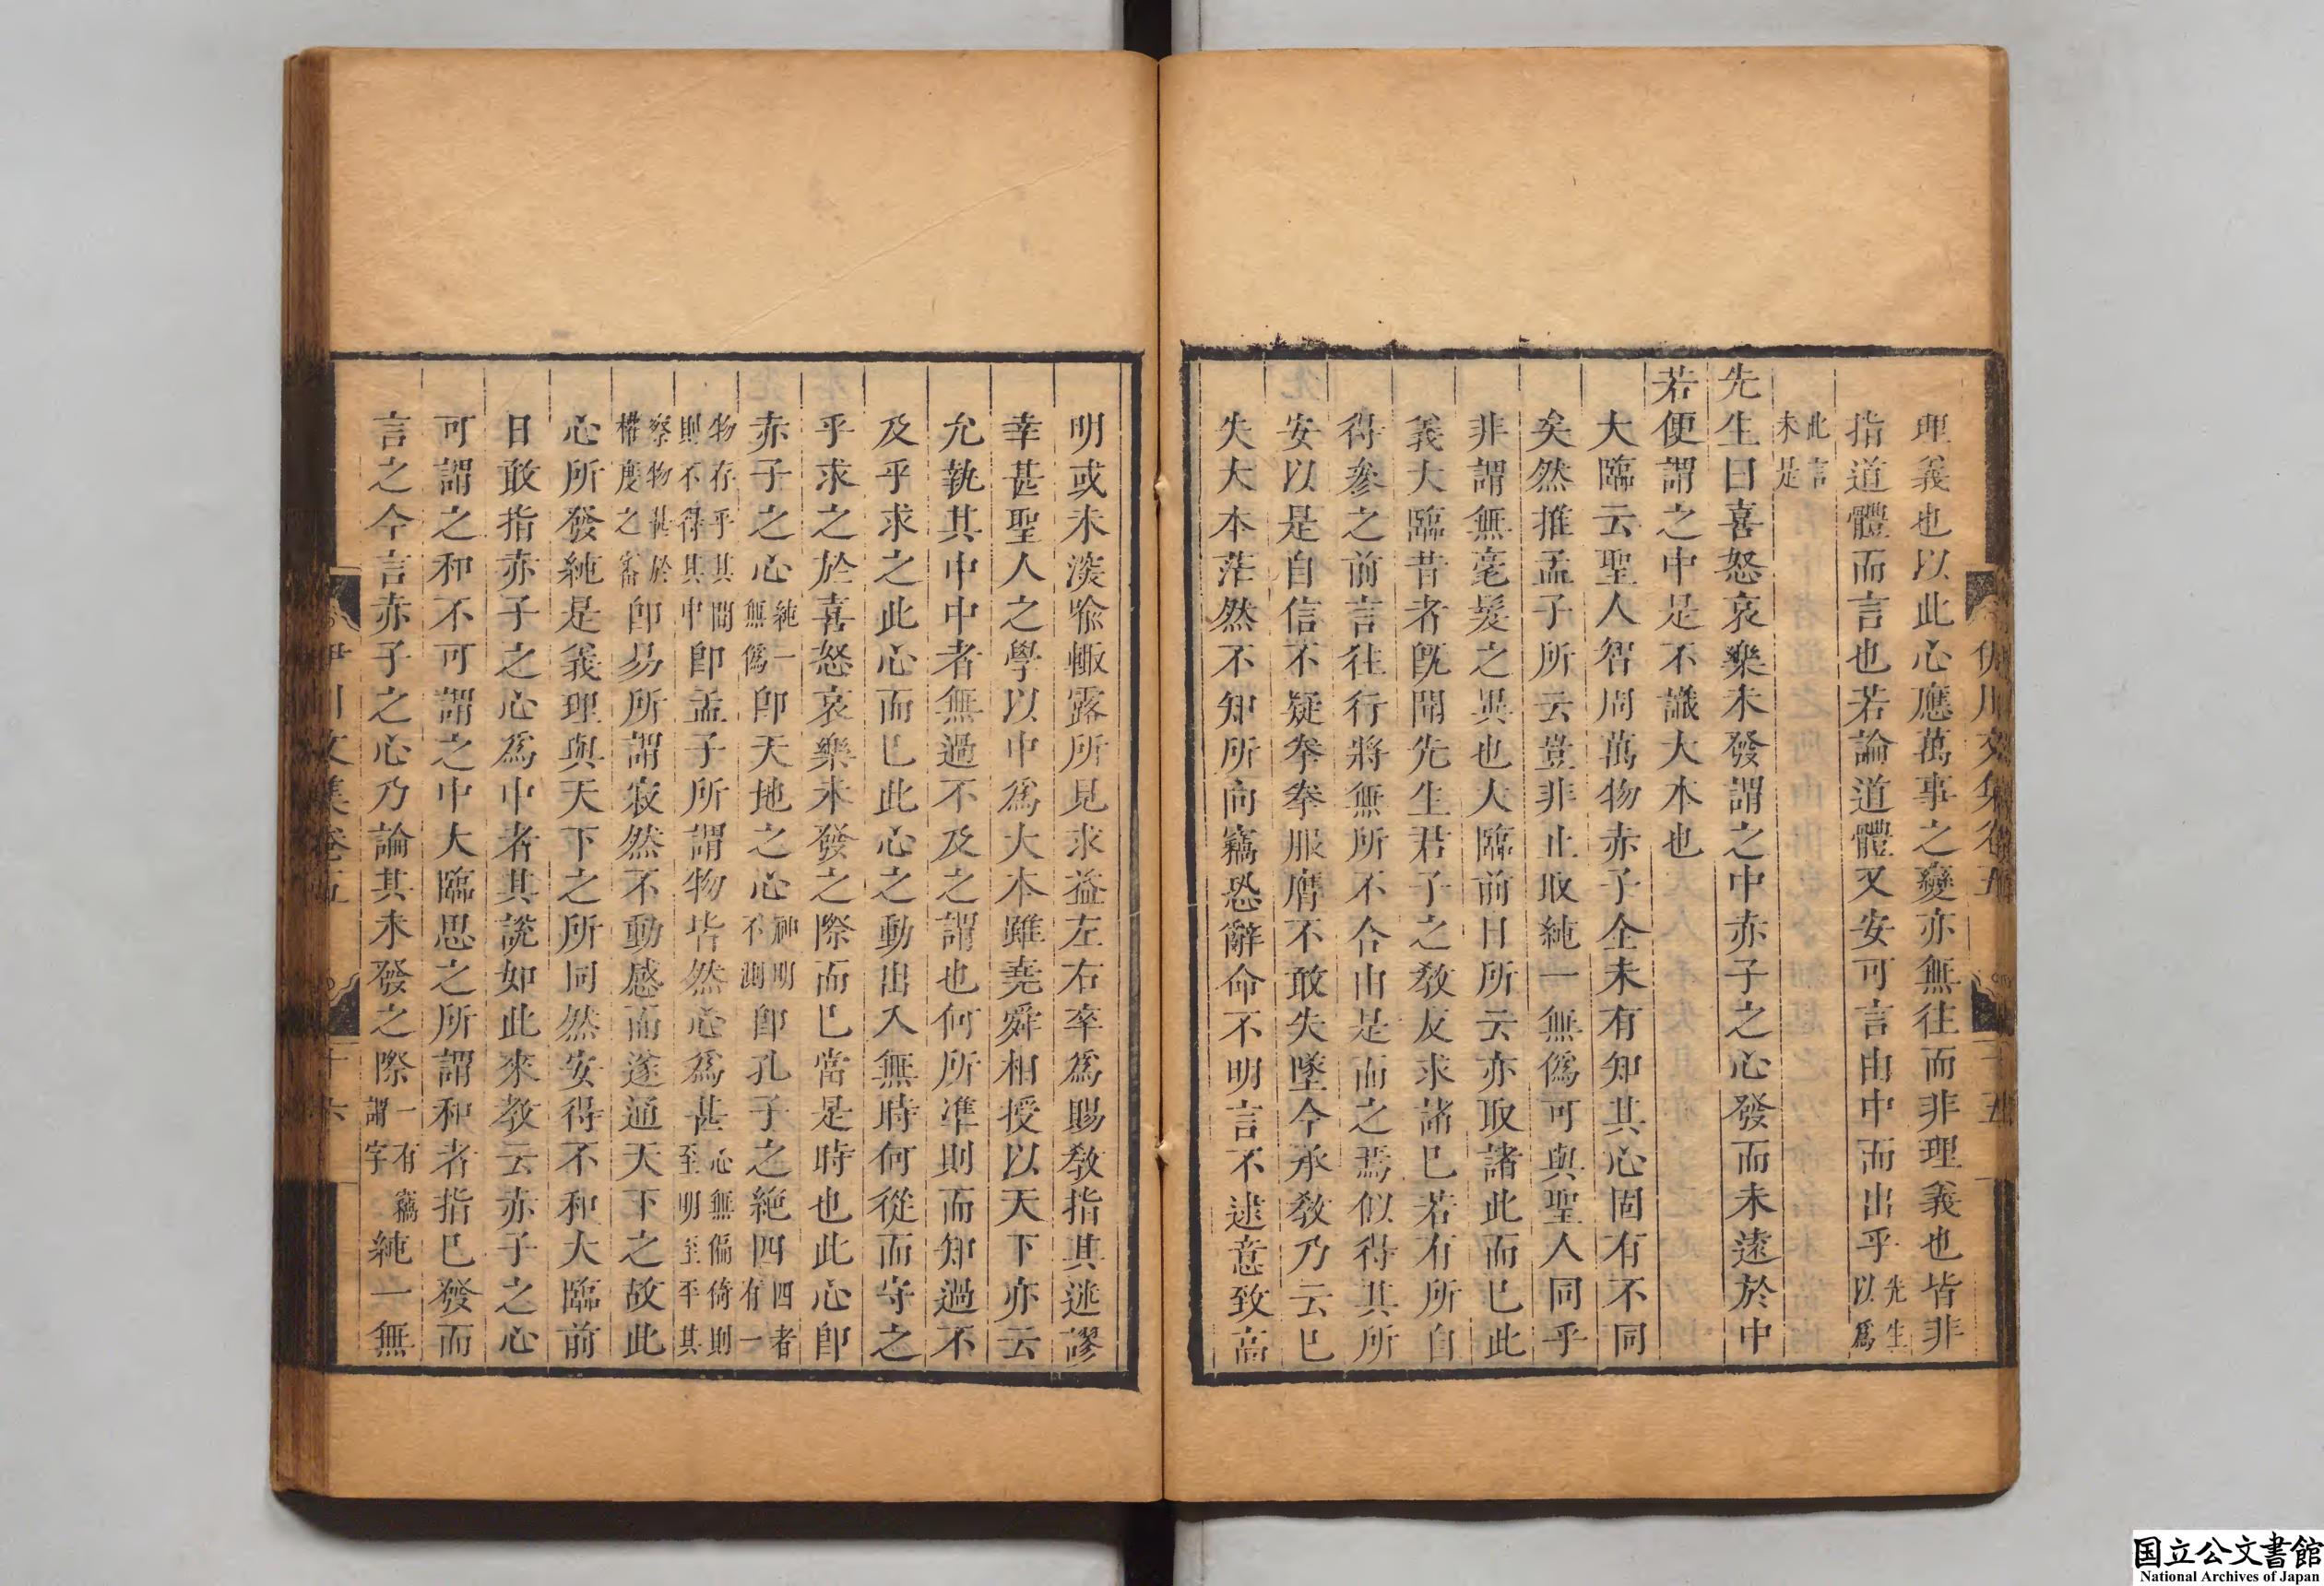 理義也以此心應萬事之變亦無往而非理義也皆非
指道體而言也若論道體又安可言由中而出乎先生以爲
此言未是
先生曰喜怒哀樂未發謂之中赤子之心發而未遠於中
若便謂之中是不識大本也
大臨云聖人智周萬物赤子全未有知其心固有不同
矣然推孟子所云豈非止取純一無僞可與聖人同乎
非謂無毫髮之異也大臨前日所云亦取諸此而已此
義大臨昔者既聞先生君子之教反求諸已若有所自
得參之前言往行將無所不合由是而之焉似得其所
安以是自信不疑拳拳服膺不敢失墜今承教乃云已
失大本茫然不知所向竊恐辭命不明言不逮意致高
明或未深喻輒露所見求益左右卒爲賜教指其迷謬
幸甚聖人之學以中爲大本雖堯舜相授以天下亦云
允執其中中者無過不及之謂也何所準則而知過不
及乎求之此心而已此心之動出入無時何從而守之
乎求之於喜怒哀樂未發之際而已當是時也此心卽
赤子之心純一無僞卽天地之心神明不測卽孔子之絶四四者有一
物存乎其間則不得其中卽孟子所謂物皆然心爲甚心無偏倚則至明至平其
察物甚於權度之審卽易所謂寂然不動感而遂通天下之故此
心所發純是義理與天下之所同然安得不和大臨前
日敢指赤子之心爲中者其說如此來教云赤子之心
可謂之和不可謂之中大臨思之所謂和者指已發而
言之今言赤子之心乃論其未發之際一有竊謂字純一無
伊川文集卷五
十五
伊川文集卷五
十六
国立公文書館
National Archives of Japan